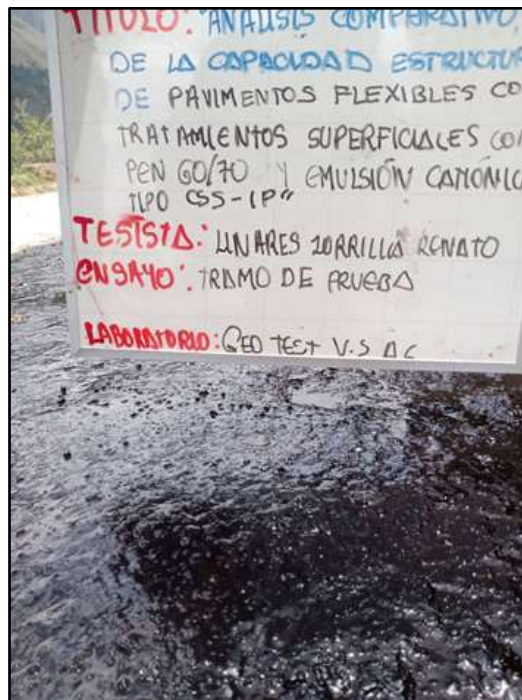 TITULO: "ANALISIS COMPARATIVO,
DE LA CAPACIDAD ESTRUCTUR
DE PAVIMENTOS FLEXIBLES CO
TRATAMIENTOS SUPERFICIALES CO
PEN 60/70 Y EMULSIÓN CATIÓNIC
TIPO CSS-1P"
TESISTA: LINARES ZORRILLA RENATO
ENSAYO: TRAMO DE PRUEBA
LABORATORIO: GEO TEST V.S A C